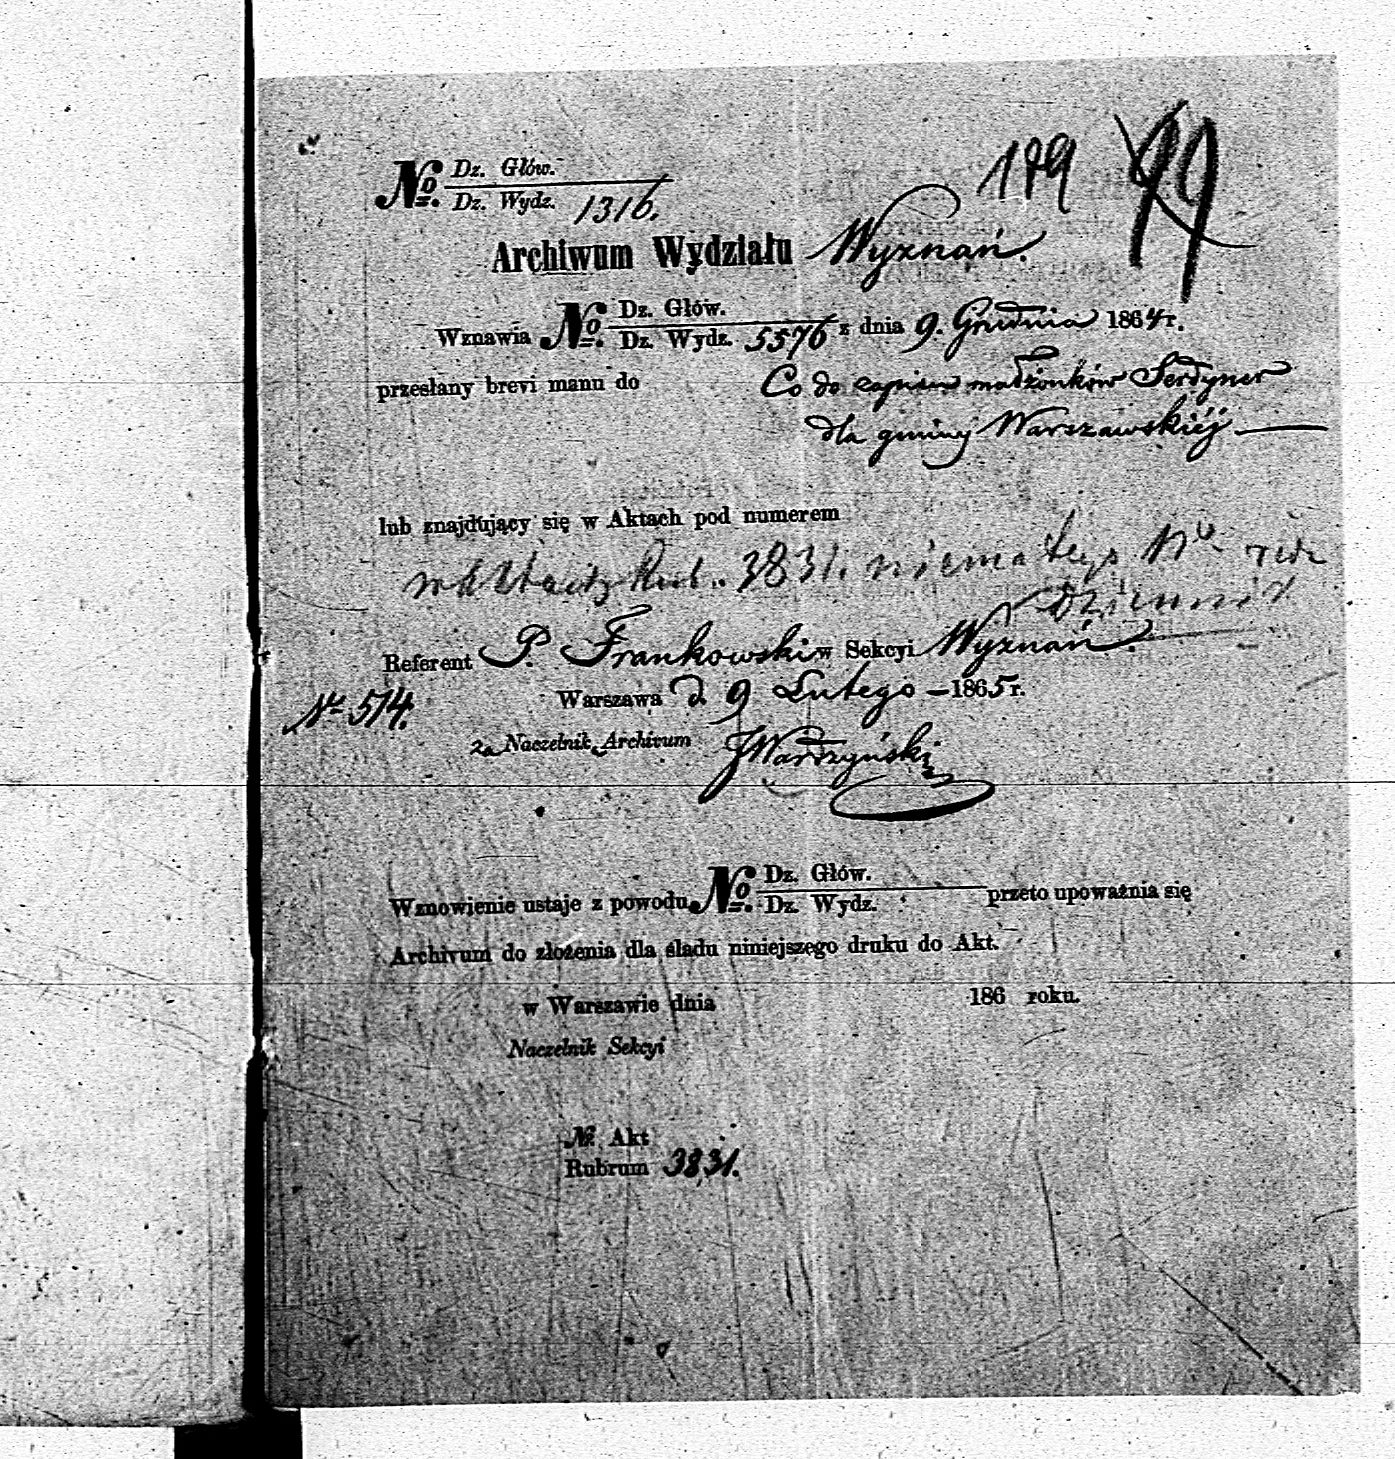 189
99
№ Dz. Głów.
Dz. Wydz. 1316.
Archiwum Wydziału Wyznań.
Wznawia № Dz. Głów.
Dz. Wydz. 5576 z dnia 9. Grudnia 1864 r.
przesłany brevi manu do Co do zapisu małżonków Serdyner
dla gminy Warszawskiéj
lub znajdujący się w Aktach pod numerem
w Aktach Rub. 3831. niema tego No
Dziennik
Referent P. Frankowski w Sekcyi Wyznań.
Nr 514.
Warszawa d 9 Lutego 1865 r.
za Naczelnika Archivum JWardzyński
Wznowienie ustaje z powodu № Dz. Głów.
Dz. Wydz. przeto upoważnia się
Archivum do złożenia dla śladu niniejszego druku do Akt.
w Warszawie dnia 186 roku.
Naczelnik Sekcyi
№ Akt
Rubrum 3831.